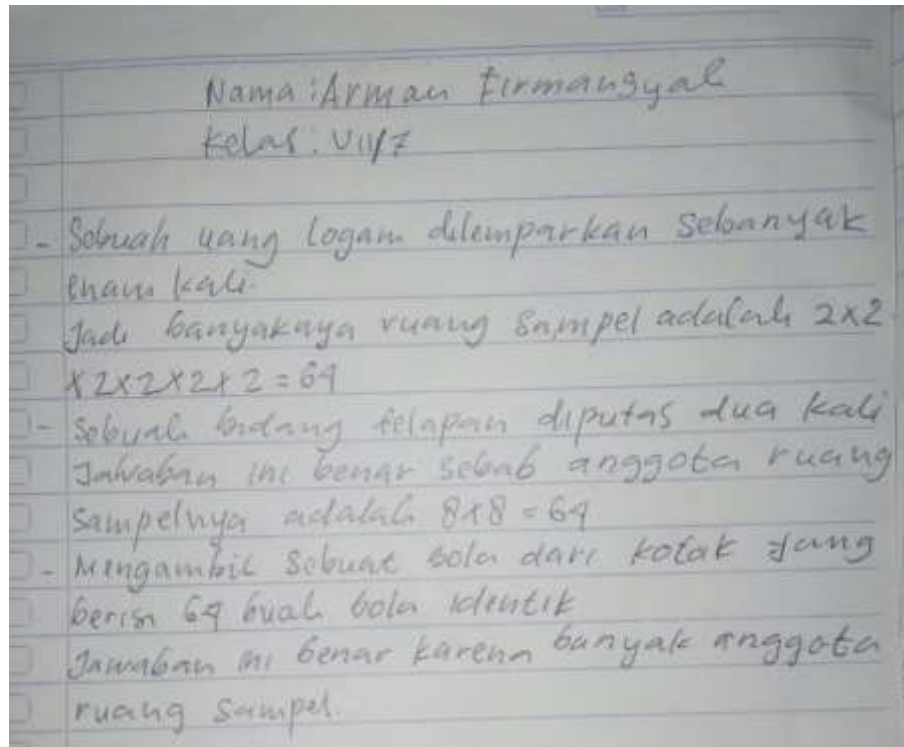 Nama : Arman Firmansyah
Kelas : VII/7
- Sebuah uang logam dilemparkan sebanyak
enam kali.
Jadi banyaknya ruang sampel adalah 2x2
x2x2x2x2 = 64
- Sebuah bidang delapan diputas dua kali
Jawaban ini benar sebab anggota ruang
sampelnya adalah 8x8 = 64
- Mengambil sebuat bola dari kotak yang
berisi 64 buah bola identik
Jawaban ini benar karena banyak anggota
ruang sampel.